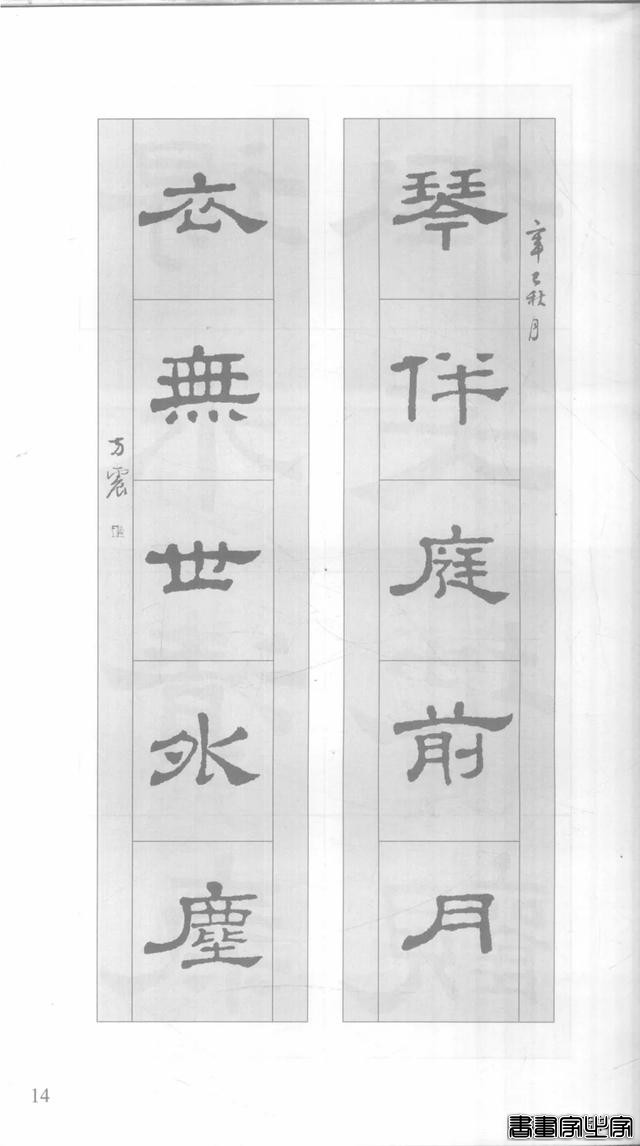 琴伴庭前月
辛巳秋月
衣無世外塵
方震
14
書畫家必字